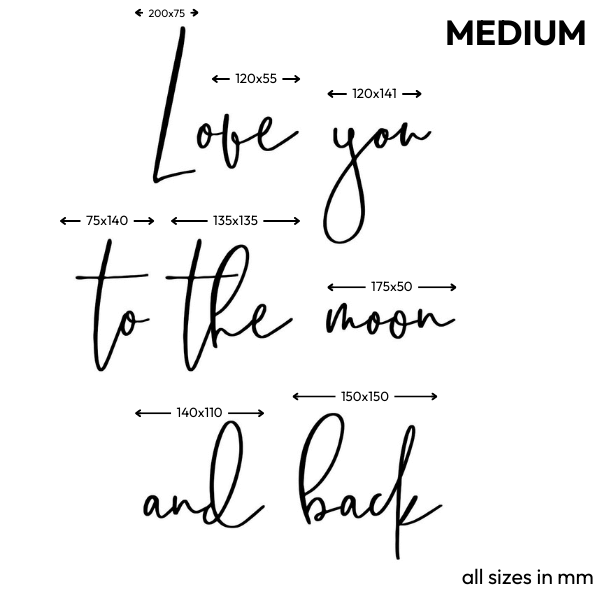 200x75
MEDIUM
120x55
120x141
Love you
75x140
135x135
to the moon
175x50
140x110
150x150
and back
all sizes in mm